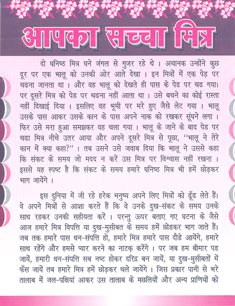 आपका सच्चा मित्र
दो घनिष्ठ मित्र घने जंगल से गुजर रहे थे । अचानक उन्होंने कुछ
दूर पर एक भालू को उनकी ओर आते देखा । इन मित्रों में एक पेड़ पर
चढ़ना जानता था । और वह भालू को देखते ही पास के पेड़ पर चढ़ गया।
पर दूसरा मित्र को पेड़ पर चढ़ना नहीं आता था । उसे बचने का कोई रास्ता
नहीं दिखाई दिया । इसलिए वह भूमी पर मरे हुए जैसे लेट गया । भालू
उसके पास आकर उसके कान के पास अपने नाक को रखकर सूंघने लगा ।
फिर उसे मरा हुआ समझकर वह चला गया । भालू के जाने के बाद पेड़ पर
चढ़ा मित्र नीचे उतर आया और अपने दूसरे मित्र से पूछा, "भालू ने तेरे
कान में क्या कहा?" । तब उसने उसे जवाब दिया कि भालू ने उससे कहा
कि संकट के समय जो मदद न करें उस मित्र पर विश्वास नहीं रखना ।
इससे यह स्पष्ट है कि संकट के समय हमारे घनिष्ठ मित्र भी हमें छोड़कर
भाग जायेंगे ।
इस दुनिया में जी रहे हरेक मनुष्य अपने लिए मित्रों को ढूँढ लेते हैं।
वे अपने मित्रों से आशा करते हैं कि वे उनके दुख-संकट के समय उनके
साथ रहकर उनकी सहायता करें । परन्तु ऊपर बताए गए घटना के जैसे
आज हमारे मित्र विपत्ति या दुख-मुसीबत के समय हमें छोड़कर भाग जाते हैं।
जब तक हमारे पास धन-संपत्ति हो, हमारे मित्र हमारे पास दौड़े आयेंगे, हमारे
साथ रहेंगे और हमसे प्यार करने का नाटक करेंगे । पर जब हम बीमार पड़
जायें, हमारी धन-संपत्ति सब नष्ट होकर दरिद्र बन जायें, या दुख-मुसीबतों में
फँस जायें तब हमारे मित्र हमें छोड़कर चले जायेंगे । जिस प्रकार पानी से भरे
तालाब में जल-पक्षियां आकर उस तालाब के मछलियों और अन्य प्राणियों को